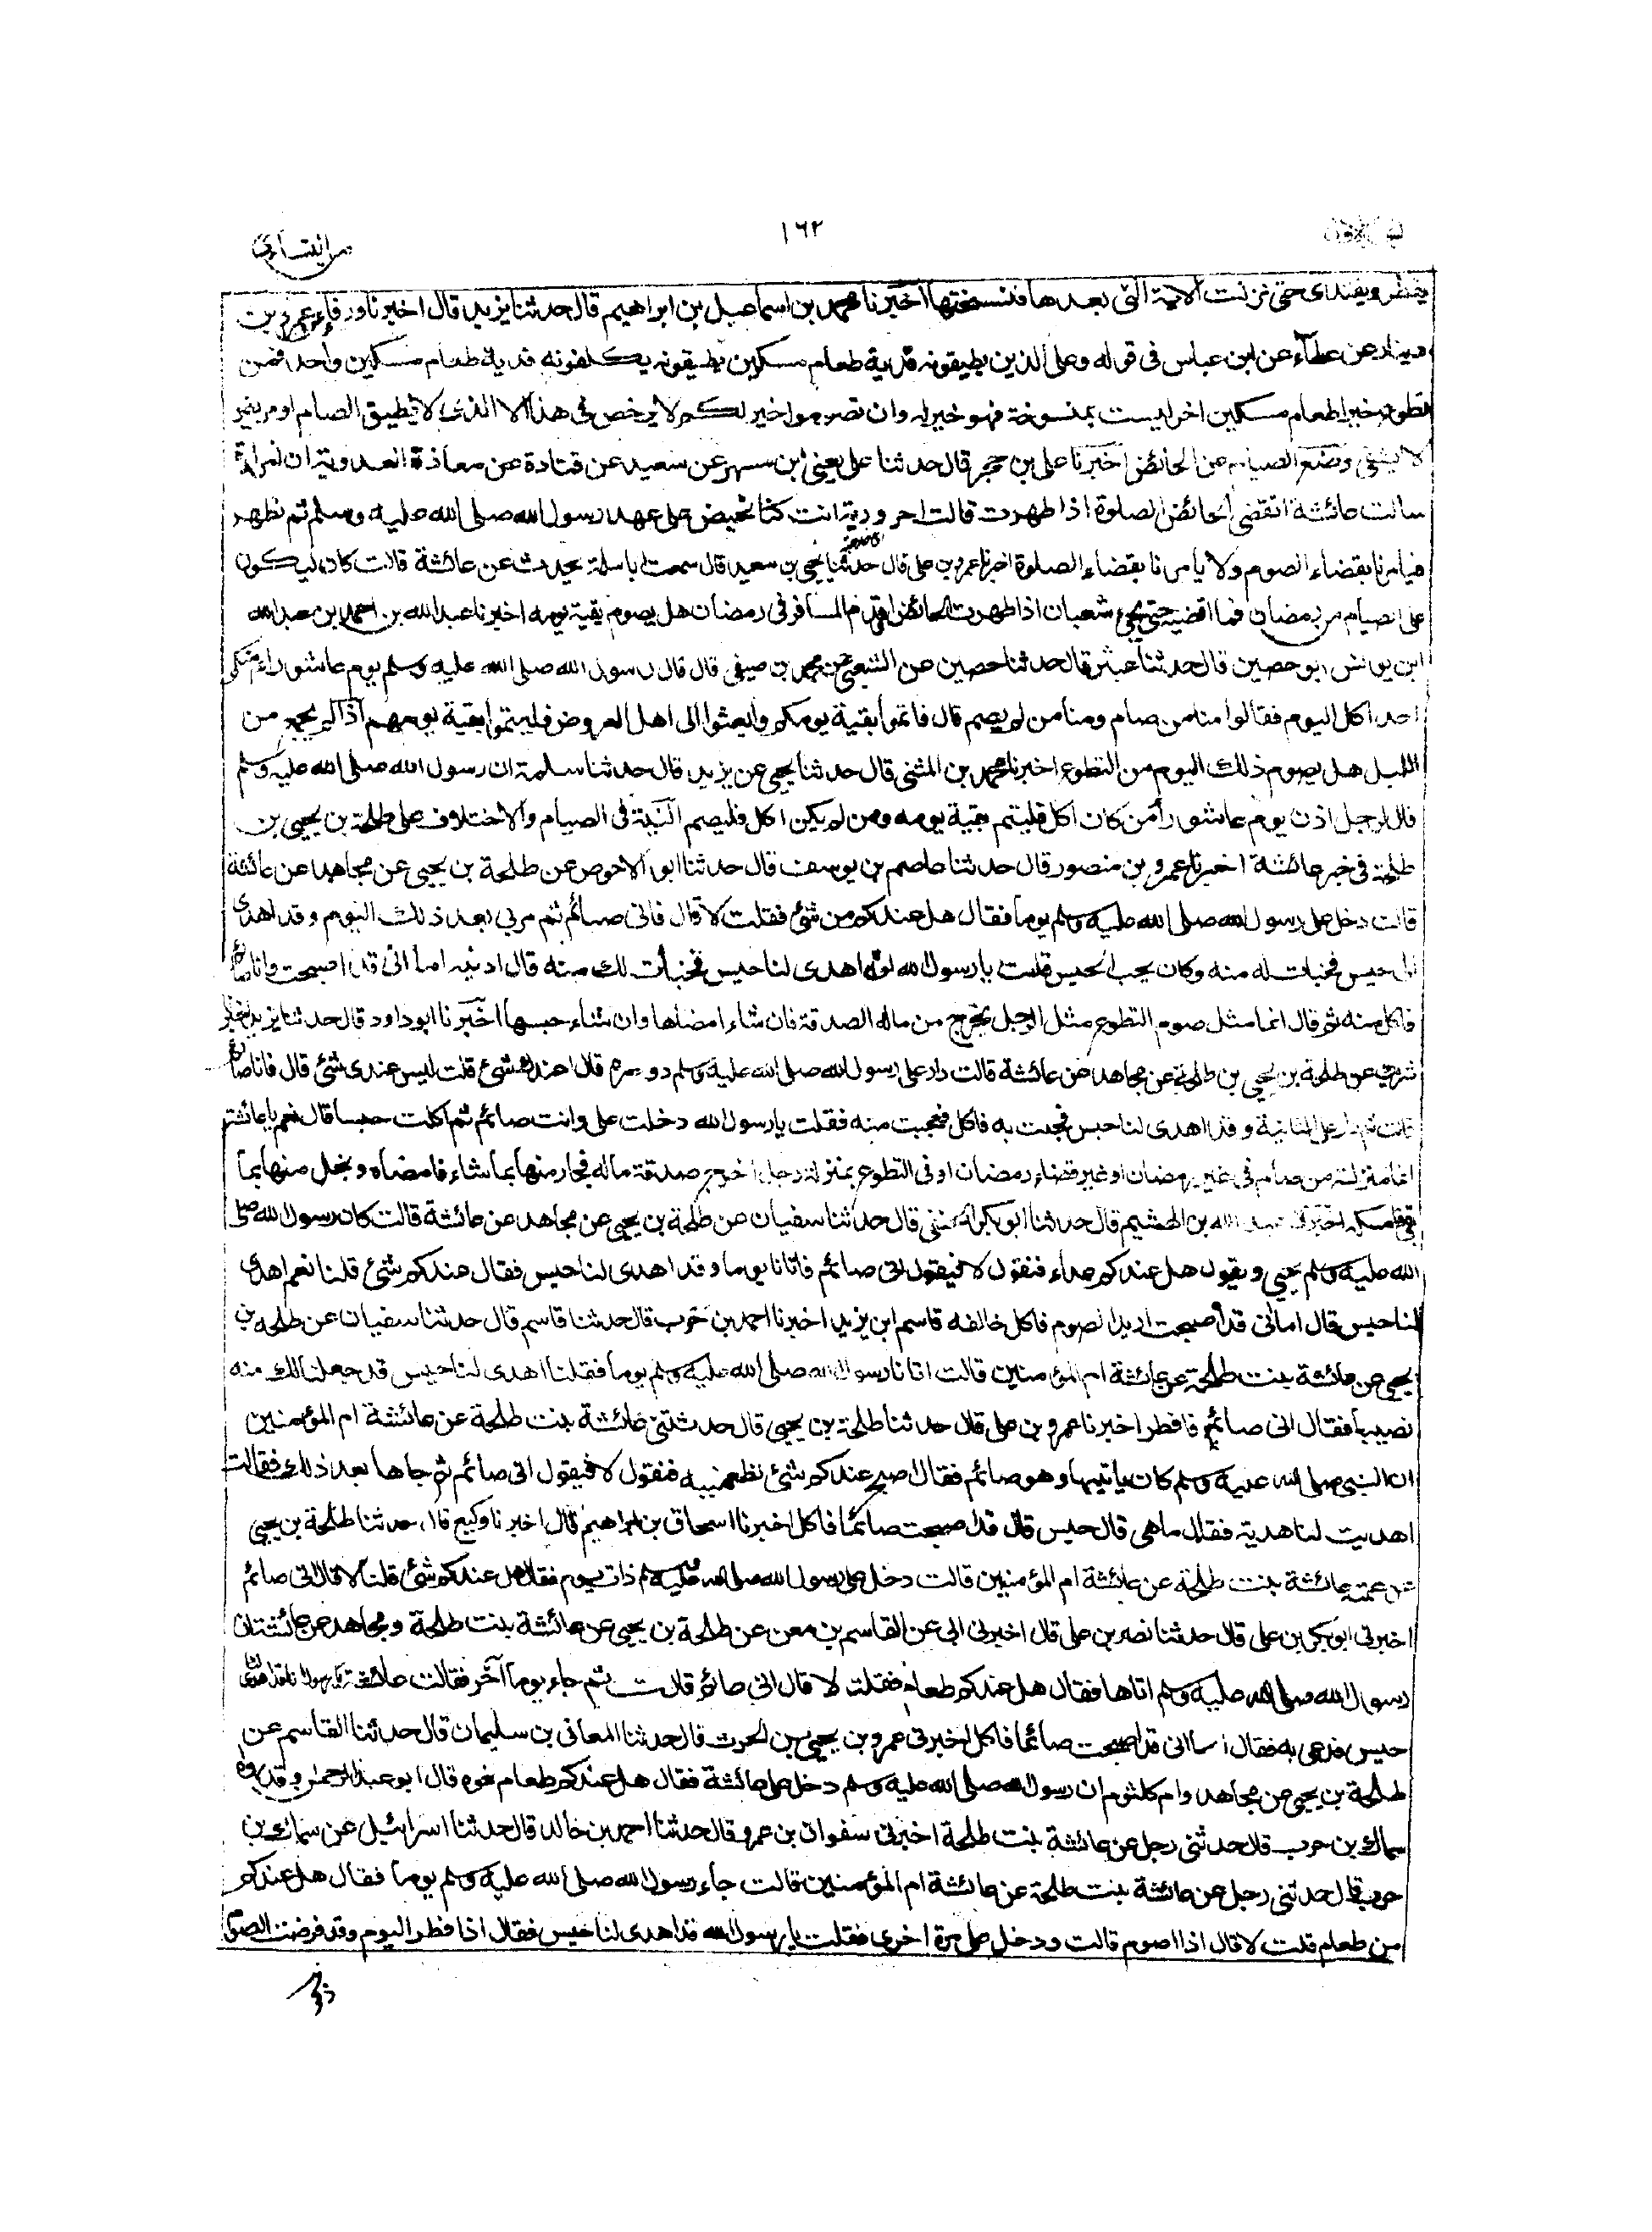 ١٦٢
يفطر ويفتدى حتى نزلت الاية التى بعدها فنسختها اخبرنا محمد بن اسماعيل بن ابراهيم قال حدثنا يزيد قال اخبرنا ورقاء عن عمرو بن
دينار عن عطاء عن ابن عباس فى قوله وعلى الذين يطيقونه فدية طعام مسكين يطيقونه يكلفونه فدية طعام مسكين واحد فمن
تطوع خيرا طعام مسكين اخر ليست بمنسوخة فهو خير له وان تصوموا خير لكم لا يرخص فى هذا الا الذى لا يطيق الصيام او مريض
لا يشفى وضع الصيام عن الحائض اخبرنا على بن حجر قال حدثنا على يعنى ابن مسهر عن سعيد عن قتادة عن معاذة العدوية ان امراة
سالت عائشة اتقضى الحائض الصلوة اذا طهرت قالت احرورية انت كنا نحيض على عهد رسول الله صلى الله عليه وسلم ثم نطهر
فيامرنا بقضاء الصوم ولا يامرنا بقضاء الصلوة اخبرنا عمرو بن على قال حدثنا يحيى بن سعيد قال سمعت اباسلمة يحدث عن عائشة قالت كان ليكون
على الصيام من رمضان فما اقضيه حتى يجئ شعبان اذا طهرت الحائض او قدم المسافر فى رمضان هل يصوم بقية يومه اخبرنا عبد الله بن احمد بن عبد الله
ابن يونس ابو حصين قال حدثنا عبثر قال حدثنا حصين عن الشعبى عن محمد بن صيفى قال قال رسول الله صلى الله عليه وسلم يوم عاشوراء امنكم
احد اكل اليوم فقالوا منا من صام ومنا من لم يصم قال فاتموا بقية يومكم وابعثوا الى اهل العروض فليتموا بقية يومهم اذا لم يجمع من
الليل هل يصوم ذلك اليوم من التطوع اخبرنا محمد بن المثنى قال حدثنا يحيى عن يزيد قال حدثنا سلمة ان رسول الله صلى الله عليه وسلم
قال لرجل اذن يوم عاشورا من كان اكل فليتم بقية يومه ومن لم يكن اكل فليصم النية فى الصيام والاختلاف على طلحة بن يحيى بن
طلحة فى خبر عائشة اخبرنا عمرو بن منصور قال حدثنا عاصم بن يوسف قال حدثنا ابو الاحوص عن طلحة بن يحيى عن مجاهد عن عائشة
قالت دخل على رسول الله صلى الله عليه وسلم يوما فقال هل عندكم من شئ فقلت لا قال فانى صائم ثم مر بى بعد ذلك اليوم وقد اهدى
الى حيس فخبات له منه وكان يحب الحيس قلت يا رسول الله انه اهدى لنا حيس فخبات لك منه قال ادنيه اما انى قد اصبحت وانا صائم
فاكل منه ثم قال انما مثل صوم التطوع مثل الرجل يخرج من ماله الصدقة فان شاء امضاها وان شاء حبسها اخبرنا ابو داود قال حدثنا يزيد اخبرنا
شريك عن طلحة بن يحيى بن طلحة عن مجاهد عن عائشة قالت دار على رسول الله صلى الله عليه وسلم دورة قال اعندك شئ قلت ليس عندى شئ قال فانا صائم
قالت ثم دار على الثانية وقد اهدى لنا حيس فجئت به فاكل فعجبت منه فقلت يا رسول الله دخلت على وانت صائم ثم اكلت حيسا قال نعم يا عائشة
انما منزلة من صام فى غير رمضان او غير قضاء رمضان او فى التطوع بمنزلة رجل اخرج صدقة ماله فجاد منها بما شاء فامضاه وبخل منها بما
بقى فامسكه اخبرنا عبد الله بن الهشيم قال حدثنا ابو بكر الحنفى قال حدثنا سفيان عن طلحة بن يحيى عن مجاهد عن عائشة قالت كان رسول الله صلى
الله عليه وسلم يجئ ويقول هل عندكم غداء فنقول لا فيقول انى صائم فاتانا يوما وقد اهدى لنا حيس فقال هل عندكم شئ قلنا نعم اهدى
لنا حيس قال اما انى قد اصبحت اريد الصوم فاكل خالفه قاسم ابن يزيد اخبرنا احمد بن حرب قال حدثنا قاسم قال حدثنا سفيان عن طلحة بن
يحيى عن عائشة بنت طلحة عن عائشة ام المؤمنين قالت اتانا رسول الله صلى الله عليه وسلم يوما فقلنا اهدى لنا حيس قد جعلنا لك منه
نصيبا فقال انى صائم فافطر اخبرنا عمرو بن على قال حدثنا طلحة بن يحيى قال حدثتنى عائشة بنت طلحة عن عائشة ام المؤمنين
ان النبى صلى الله عليه وسلم كان ياتيها وهو صائم فقال اصبح عندكم شئ تطعمينيه فنقول لا فيقول انى صائم ثم جاها بعد ذلك فقالت
اهديت لنا هدية فقال ما هى قال حيس قال قد اصبحت صائما فاكل اخبرنا اسحاق بن ابراهيم قال اخبرنا وكيع قال حدثنا طلحة بن يحيى
عن عمته عائشة بنت طلحة عن عائشة ام المؤمنين قالت دخل على رسول الله صلى الله عليه وسلم ذات يوم فقال هل عندكم شئ قلنا لا قال انى صائم
اخبرنى ابو بكر بن على قال حدثنا نصر بن على قال اخبرنى ابى عن القاسم بن معن عن طلحة بن يحيى عن عائشة بنت طلحة ومجاهد عن عائشة ان
رسول الله صلى الله عليه وسلم اتاها فقال هل عندكم طعام فقلت لا قال انى صائم قالت ثم جاء يوما آخر فقالت عائشة يا رسول الله انا قد اهدى لنا
حيس فدعى به فقال اما انى قد اصبحت صائما فاكل اخبرنى عمرو بن يحيى بن الحرث قال حدثنا المعافى بن سليمان قال حدثنا القاسم عن
طلحة بن يحيى عن مجاهد وام كلثوم ان رسول الله صلى الله عليه وسلم دخل على عائشة فقال هل عندكم طعام نحوه قال ابو عبد الرحمن وقد رواه
سماك بن حرب قال حدثنى رجل عن عائشة بنت طلحة اخبرنى سفوان بن عمرو قال حدثنا احمد بن خالد قال حدثنا اسرائيل عن سماك بن
حرب قال حدثنى رجل عن عائشة بنت طلحة عن عائشة ام المؤمنين قالت جاء رسول الله صلى الله عليه وسلم يوما فقال هل عندكم
من طعام قلت لا قال اذا اصوم قالت ودخل على مرة اخرى فقلت يا رسول الله قد اهدى لنا حيس فقال اذا افطر اليوم وقد فرضت الصوم